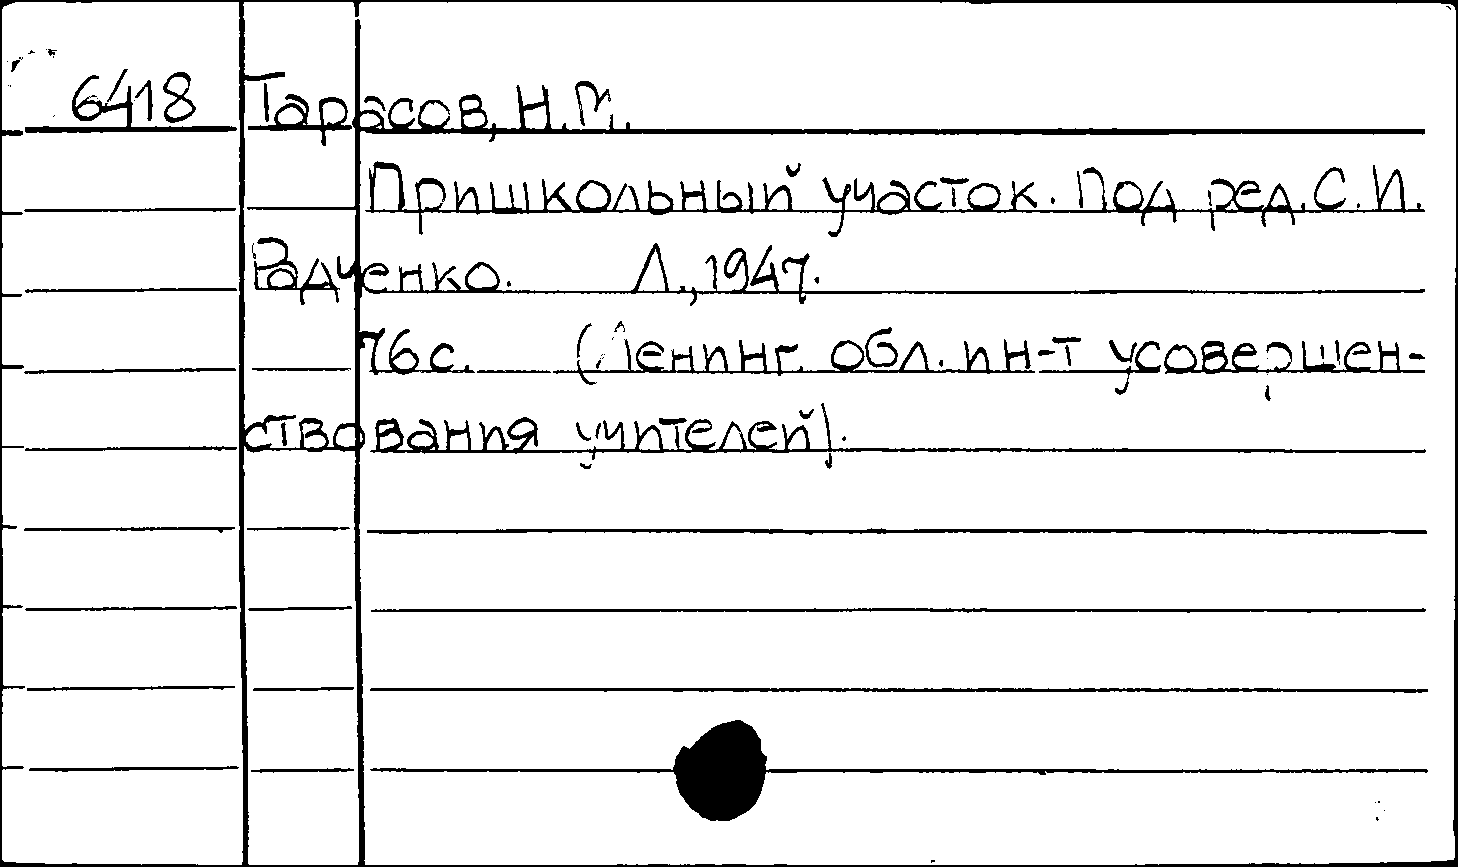 6418 Тарасов, Н.М.
Пришкольный участок. Под ред. С.И.
Радченко. Л., 1947.
76 с. (Ленинг. обл. ин-т усовершен-
ствования учителей).